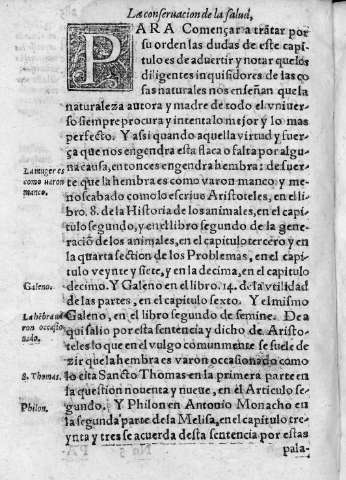 La conseruacion de la salud,
PARA Començar a tratar por
su orden las dudas de este capi
tulo es de aduertir y notar que los
diligentes inquisidores de las co
sas naturales nos enseñan que la
naturaleza autora y madre de todo el vniuer-
so siempre procura y intenta lo mejor y lo mas
perfecto. Y assi quando aquella virtud y fuer-
ça que nos engendra esta flaca o falta por algu-
na causa, entonces engendra hembra: de fuer-
te que la hembra es como varon manco y me-
noscabado como lo escriue Aristoteles, en el li-
bro. 8. de la Historia de los animales, en el capi-
tulo segundo, y en el libro segundo de la gene-
raciõ de los animales, en el capitulo tercero y en
la quarta section de los Problemas, en el capi-
tulo veynte y siete, y en la decima, en el capitulo
decimo. Y Galeno en el libro. 14. de la vtilidad
de las partes, en el capitulo sexto. Y el mismo
Galeno, en el libro segundo de semine. De a
qui salio por esta sentencia y dicho de Aristo-
teles lo que en el vulgo comunmente se suele de-
zir que la hembra es varon occasionado como
lo cita Sancto Thomas en la primera parte en
la question nouenta y nueue, en el Articulo se-
gundo. Y Philon en Antonio Monacho en
la segunda parte de sa Melisa, en el capitulo tre-
ynta y tres se acuerda desta sentencia por estas
pala-
La muger es
como varon
manco.
Galeno.
La hēbra va
ron occasio
nado.
S. Thomas.
Philon.